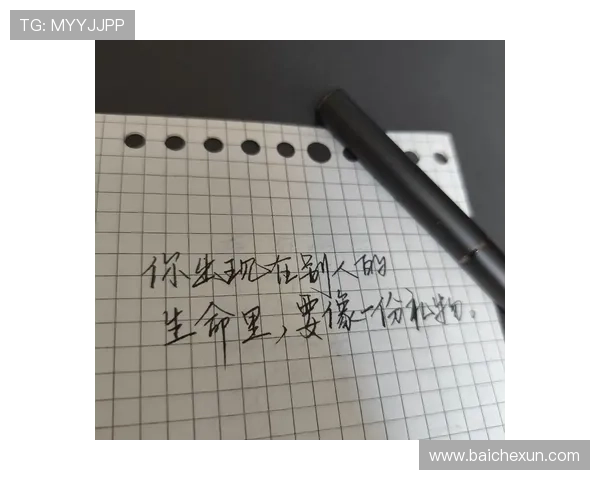 TG: MYYJJPP
你出现在别人的
生命里，要像一份礼物。
www.baichexun.com